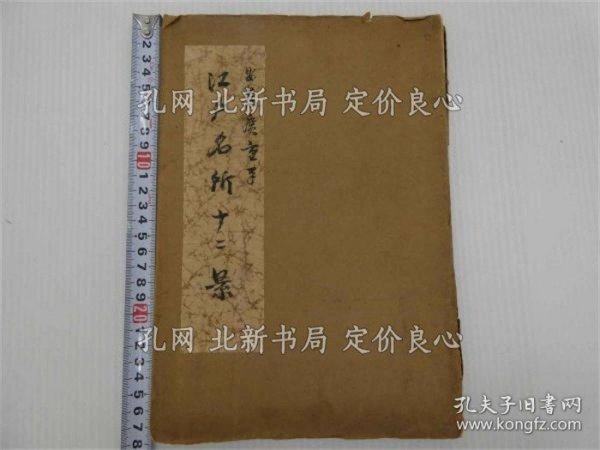 江戸名所十二景
孔网 北新书局 定价良心
孔网 北新书局 定价良心
孔网 北新书局 定价良心
2
3
4
5
6
7
8
9
10
1
2
3
4
5
6
7
8
9
20
1
2
3
4
5
6
7
8
孔夫子旧书网
www.kongfz.com